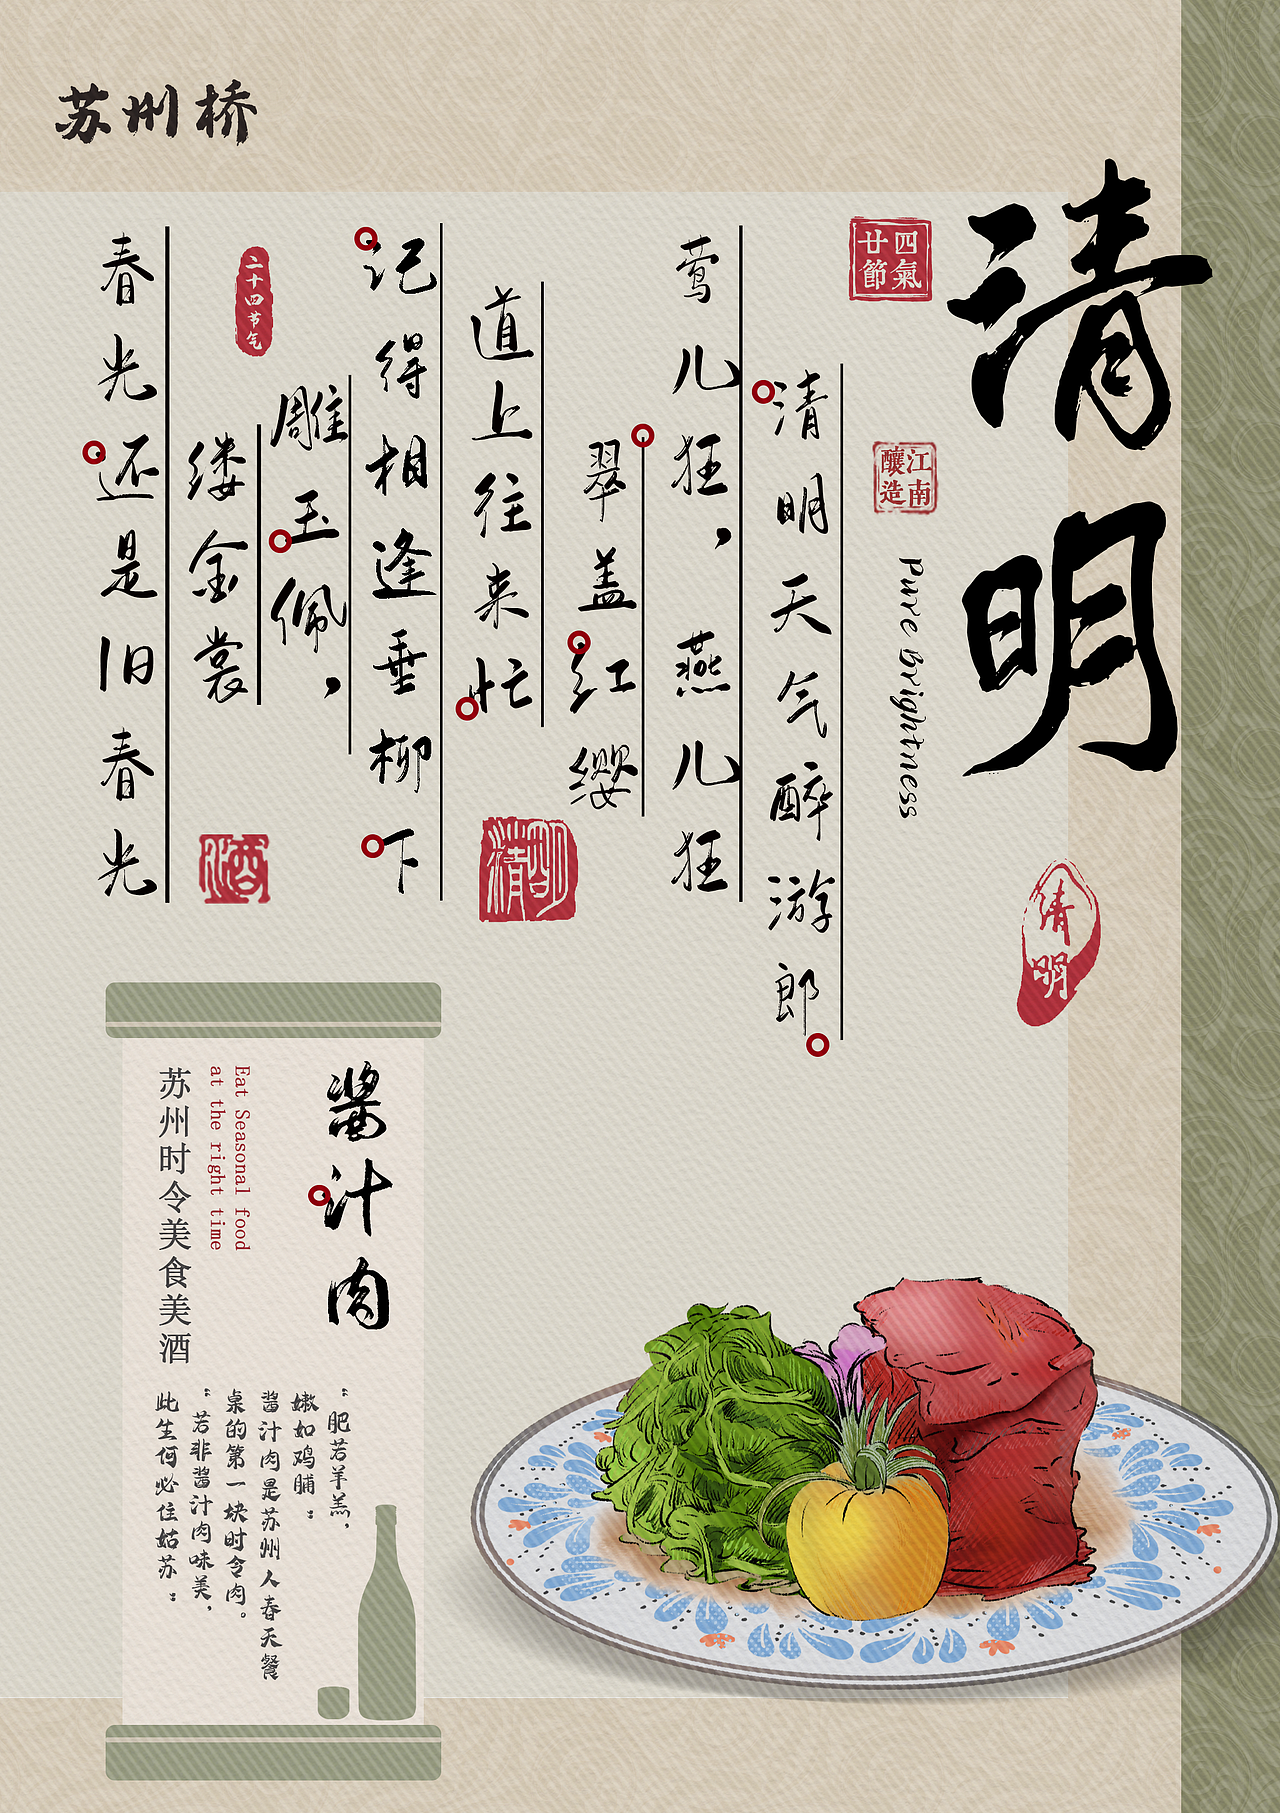 苏州桥
清明
四氣
廿節
江南
釀造
Pure Brightness
清明
清明天气醉游郎
莺儿狂，燕儿狂
翠盖红缨
道上往来忙
记得相逢垂柳下
雕玉佩，
缕金裳
春光还是旧春光
二十四节气
清明
酒
酱汁肉
Eat Seasonal food
at the right time
苏州时令美食美酒
“肥若羊羔，
嫩如鸡脯：
酱汁肉是苏州人春天餐
桌的第一块时令肉。
“若非酱汁肉味美，
此生何必住姑苏：